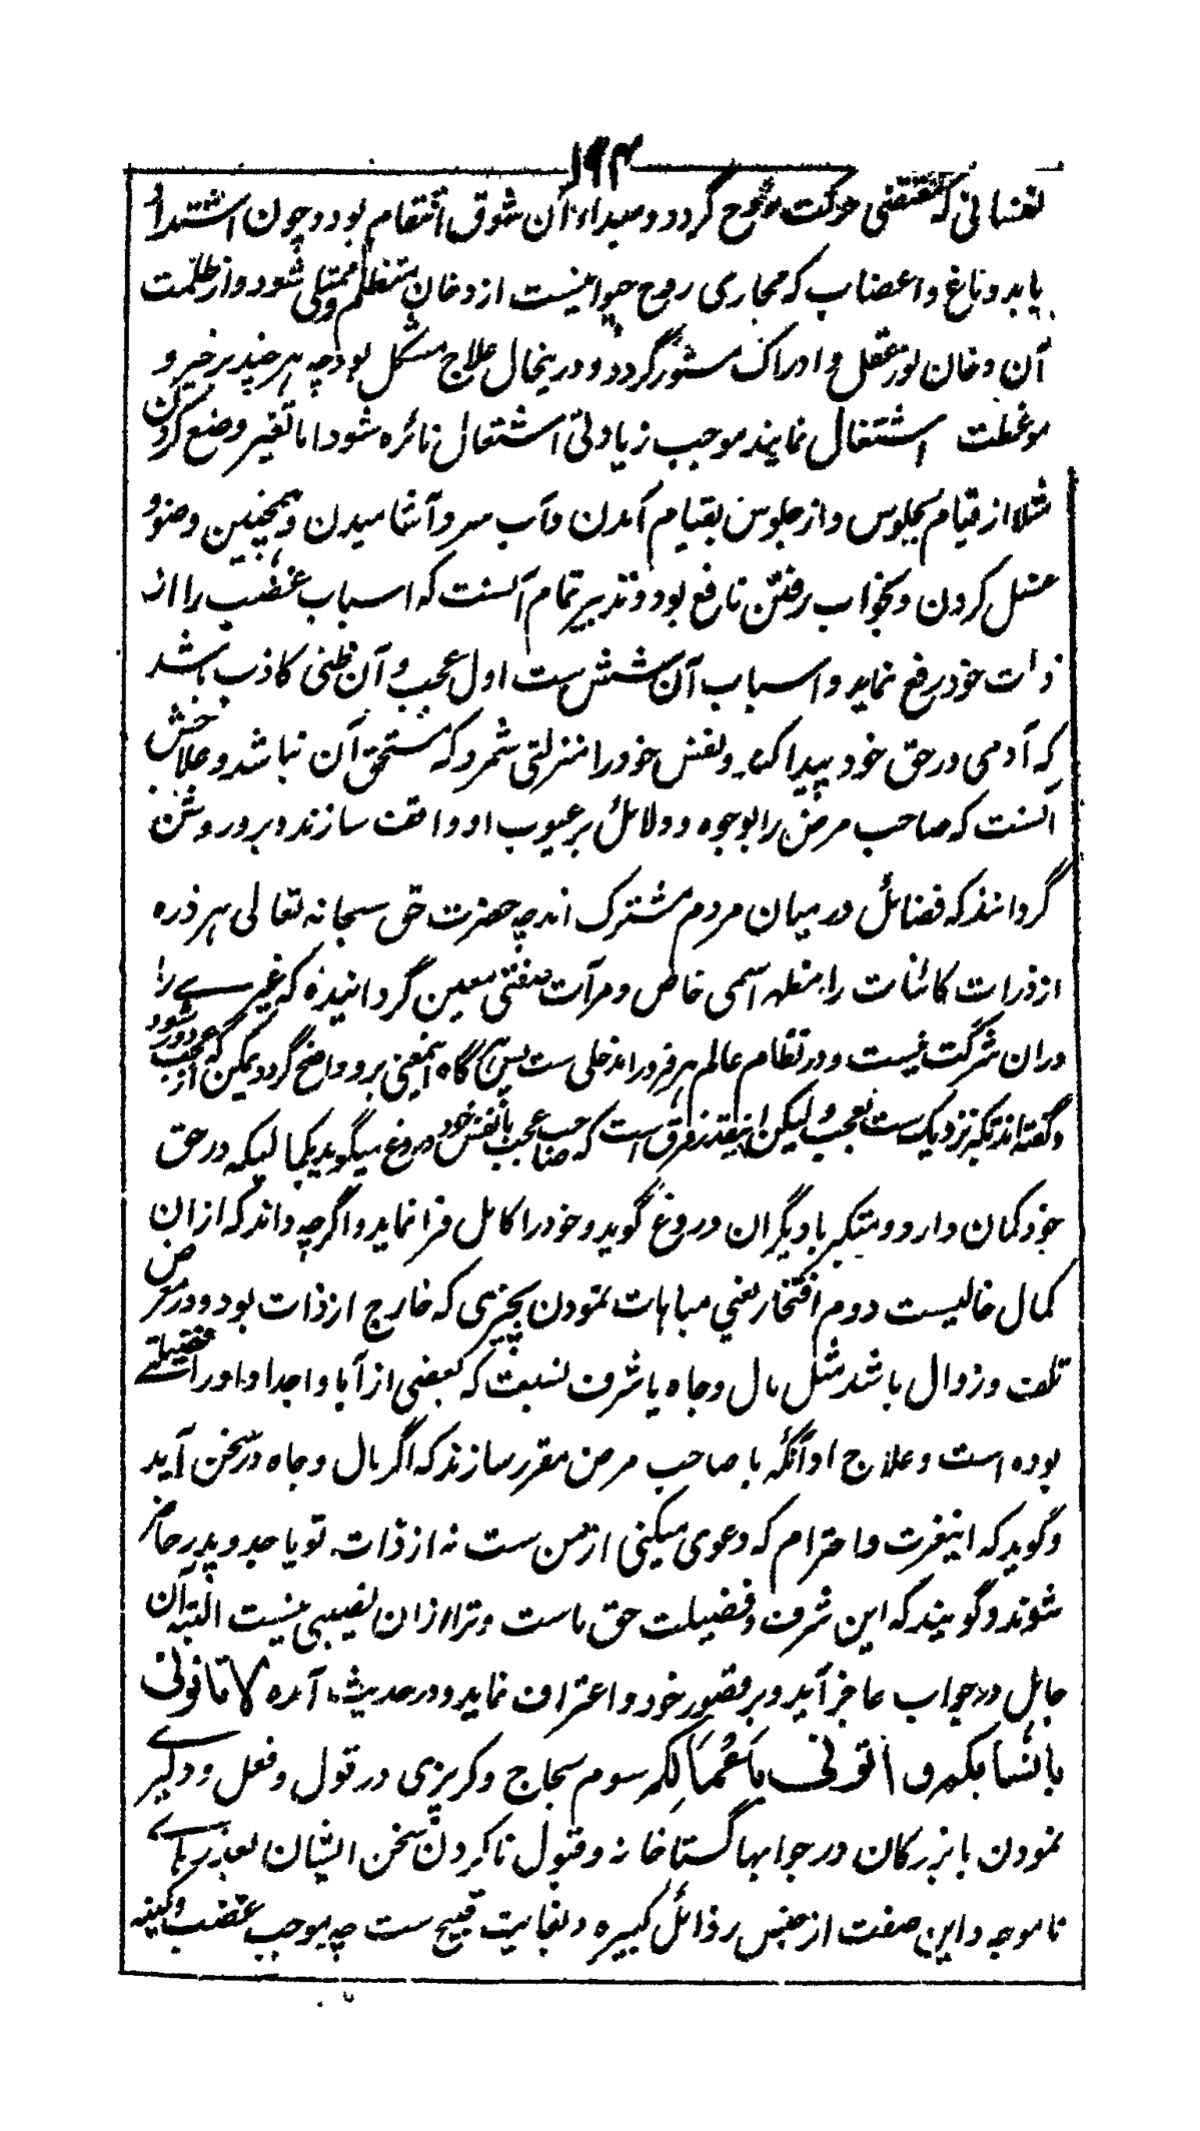 ۱۹۳
نفسانی که مقتضی حرکت روح گردد و مبداء آن شوق انتقام بود و چون اشتداد
یابد دماغ و اعضاب که مجاری روح حیوانیست از دخان مظلم و ممتلی شود و از ظلمت
آن دخان نور عقل و ادراک مستور گردد و درینحال علاج مشکل بود چه هر چند بر خیر و
موعظت اشتغال نمایند موجب زیادتی اشتعال نائره شود اما تغیر وضع کردن
مثلا از قیام بجلوس و از جلوس بقیام آمدن و آب سرد آشامیدن و همچنین وضو و
غسل کردن و بخواب رفتن نافع بود و تدبیر تمام آنست که اسباب غضب را از
ذات خود رفع نماید و اسباب آن شش ست اول عجب و آن ظنی کاذب باشد
که آدمی در حق خود پیدا کند و نفس خود را منزلتی شمرد که مستحق آن نباشد و علاجش
آنست که صاحب مرض را بوجوه و دلائل بر عیوب او واقف سازند و برو روشن
گردانند که فضائل در میان مردم مشترک اند چه حضرت حق سبحانه تعالی هر ذره
از ذرات کائنات را مظهر اسمی خاص و مرآت صفتی معین گردانیده که غیرے را
دران شرکت نیست و در نظام عالم هر فرد را مدخلی ست پس هرگاه اینمعنی برو واضح گردد یمکن که از عجب دور شود
و گفته اند تکبر نزدیک ست بعجب و لیکن اینقدر فرق است که صاحب عجب با نفس خود دروغ میگوید بکمالیکه در حق
خود گمان دارد و متکبر با دیگران دروغ گوید و خود را کامل فرا نماید و اگرچه داند که ازان
کمال خالیست دوم افتخار یعنی مباهات نمودن بچیزی که خارج از ذات بود و در معرض
تلف و زوال باشد مثل مال و جاه یا شرف نسبت که بعضی از آبا و اجداد او را فضیلتے
بوده است و علاج او آنکه با صاحب مرض مقرر سازند که اگر مال و جاه در سخن آید
و گوید که اینعزت و احترام که دعوی میکنی از من ست نه از ذات تو یا جد و پدر حاضر
شوند و گویند که این شرف و فضیلت حق ماست و ترا ازان نصیبی نیست البته آن
جاهل در جواب عاجز آید و بر قصور خود اعتراف نماید و در حدیث آمده لا تاتونی
بانسابکم و اتونی باعمالکم سوم لجاج و کربزی در قول و فعل و دلیرے
نمودن با بزرگان در جوابها گستاخانه و قبول ناکردن سخن ایشان بعذرهاے
ناموجه و این صفت از جنس رذائل کبیره و بغایت قبیح ست چه موجب غضب و کینه